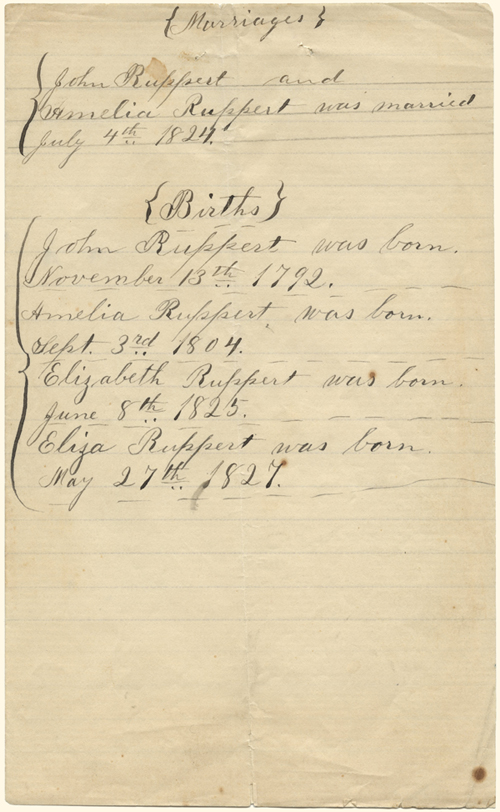 {Marriages}
John Ruppert and
Amelia Ruppert was married
July 4th 1824.
{Births}
John Ruppert was born.
November 13th 1792.
Amelia Ruppert was born.
Sept. 3rd 1804.
Elizabeth Ruppert was born.
June 8th 1825.
Eliza Ruppert was born.
May 27th 1827.